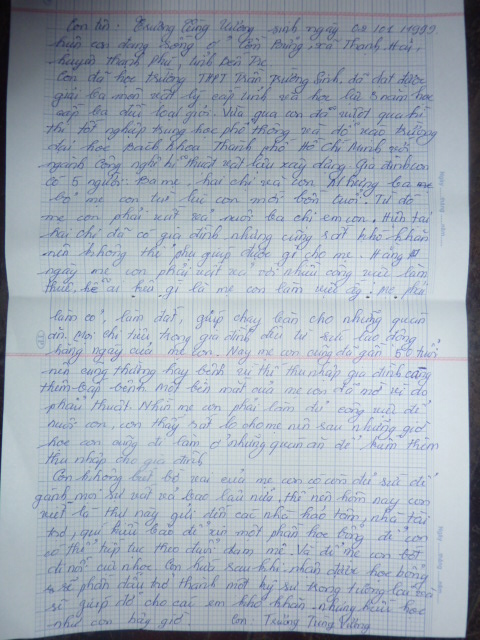 Con tên: Trương Tùng Vương sinh ngày 08/01/1999.
hiện con đang sống ở Cồn Bửng, xã Thạnh Hải,
huyện Thạnh Phú, tỉnh Bến Tre
Con đã học trường THPT Trần Trường Sinh, đã đạt được
giải ba môn vật lý cấp tỉnh và học lực 3 năm học
cấp ba đều loại giỏi. Vừa qua con đã vượt qua kì
thi tốt nghiệp trung học phổ thông và đỗ vào trường
đại học Bách Khoa Thành phố Hồ Chí Minh với
ngành Công nghệ kĩ thuật vật liệu xây dựng. Gia đình con
có 5 người. Ba mẹ, hai chị và con. Nhưng ba
bỏ mẹ con từ lúc con mới bốn tuổi. Từ đó
mẹ con phải vất vả nuôi ba chị em con. Hiện tại
hai chị đã có gia đình nhưng cũng rất khó khăn
nên không thể phụ giúp được gì cho mẹ. Hằng
ngày mẹ con phải vất vả với nhiều công việc làm
thuê, kể ai kêu gì là mẹ con làm việc ấy. Mẹ phải
làm cỏ, làm đất, giúp chạy bàn cho những quán
ăn. Mọi chi tiêu trong gia đình đều từ sức lao động
hằng ngày của mẹ con. Nay mẹ con cũng đã gần 50 tuổi
nên cũng thường hay bệnh vì thế thu nhập gia đình càng
thêm bấp bênh. Một bên mắt của mẹ con đã mờ vì do
phẫu thuật. Nhìn mẹ con phải làm đủ công việc để
nuôi con, con thấy rất lo cho mẹ nên sau những giờ
học con cũng đi làm ở những quán ăn để kiếm thêm
thu nhập cho gia đình.
Con không biết bờ vai của mẹ con có còn đủ sức để
gánh mọi sự vất vả bao lâu nữa, thế nên hôm nay con
viết lá thư này gửi đến các nhà hảo tâm, nhà tài
trợ, quí báo để xin một phần học bổng để con
có thể tiếp tục theo đuổi đam mê. Và để mẹ con bớt
đi nỗi cực nhọc. Con hứa sau khi nhận được học bổng
sẽ phấn đấu trở thành một kỹ sư trong tương lai con
sẽ giúp đỡ cho các em khó khăn nhưng hiếu học
như con bây giờ. Con: Trương Tùng Vương